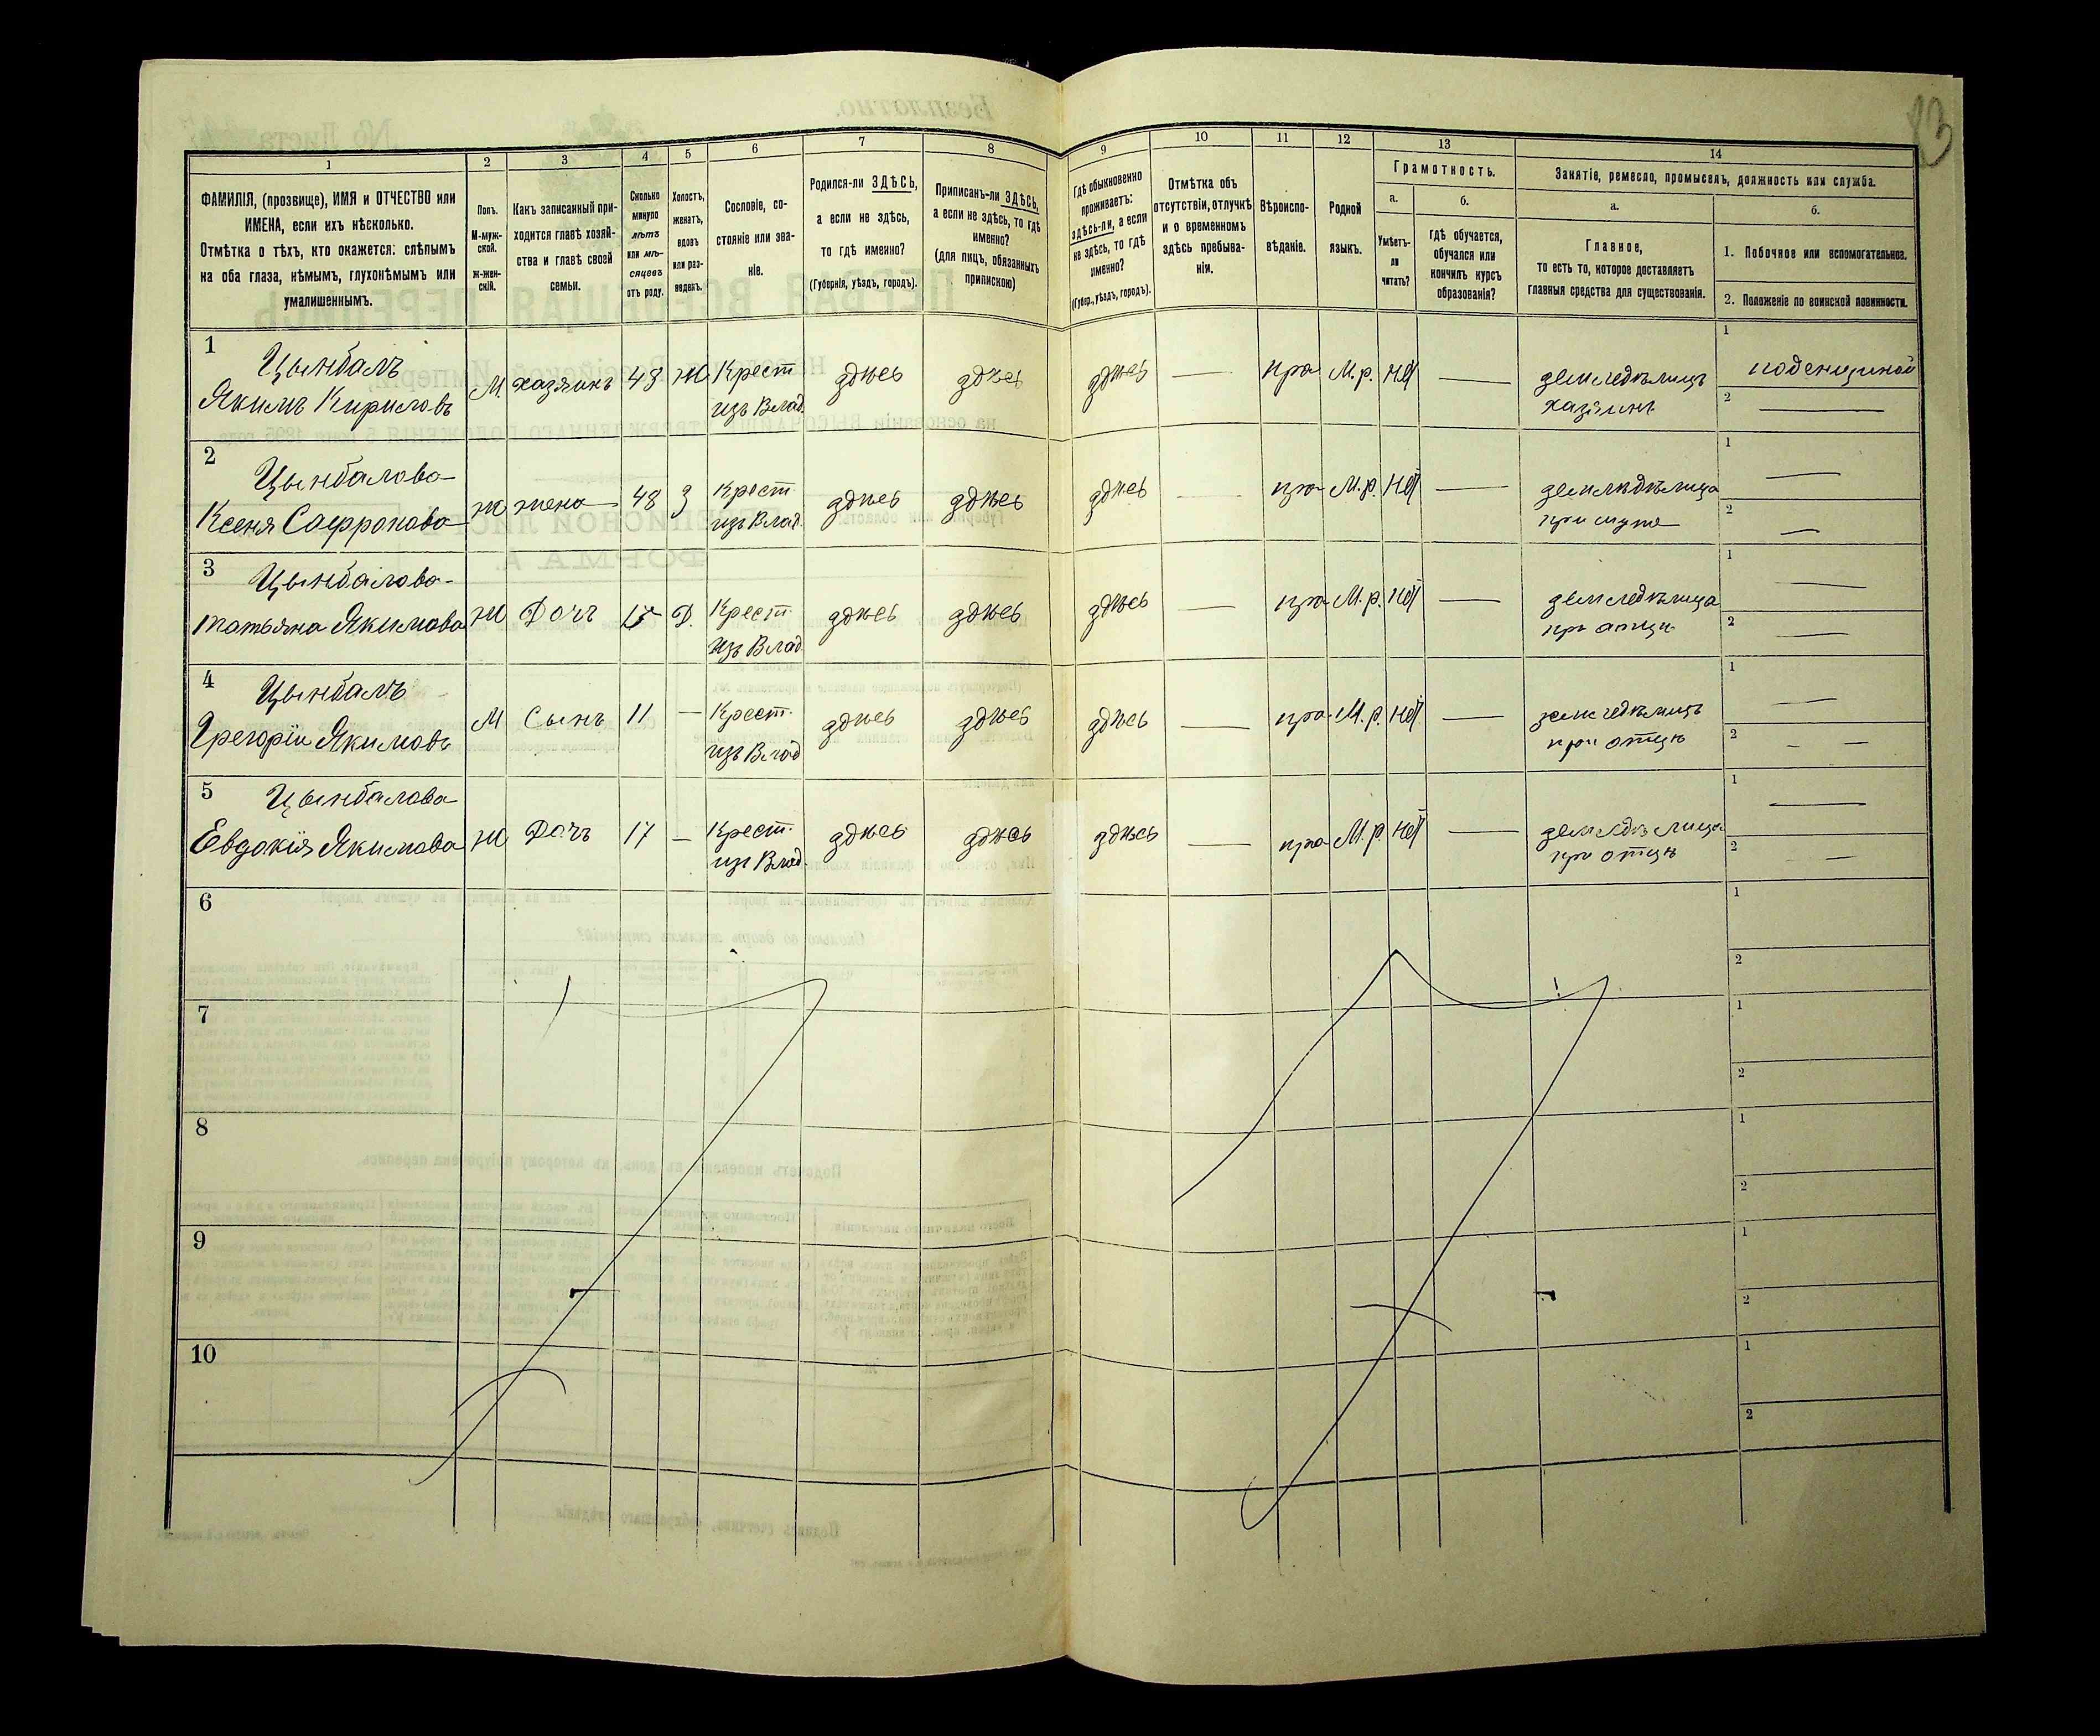 83
1
2
3
4
5
6
7
8
9
10
11
12
13
14
ФАМИЛІЯ, (прозвище), ИМЯ и ОТЧЕСТВО или
ИМЕНА, если ихъ нѣсколько.
Отмѣтка о тѣхъ, кто окажется: слѣпымъ
на оба глаза, нѣмымъ, глухонѣмымъ или
умалишеннымъ.
Полъ.
М-муж-
ской.
Ж-жен-
скій.
Какъ записанный при-
ходится главѣ хозяй-
ства и главѣ своей
семьи.
Сколько
минуло
лѣтъ
или мѣ-
сяцевъ
отъ роду.
Холостъ,
женатъ,
вдовъ
или раз-
веденъ.
Сословіе, со-
стояніе или зва-
ніе.
Родился-ли ЗДѢСЬ,
а если не здѣсь,
то гдѣ именно?
(Губернія, уѣздъ, городъ).
Приписанъ-ли ЗДѢСЬ,
а если не здѣсь, то гдѣ
именно?
(для лицъ, обязанныхъ
припискою)
Гдѣ обыкновенно
проживаетъ:
здѣсь-ли, а если
не здѣсь, то гдѣ
именно?
(Губер., уѣздъ, городъ).
Отмѣтка объ
отсутствіи, отлучкѣ
и о временномъ
здѣсь пребыва-
ніи.
Вѣроиспо-
вѣданіе.
Родной
языкъ.
Грамотность.
а.
Умѣетъ-
ли
читать?
б.
гдѣ обучается,
обучался или
кончилъ курсъ
образованія?
Занятіе, ремесло, промыселъ, должность или служба.
а.
Главное,
то есть то, которое доставляетъ
главныя средства для существованія.
б.
1. Побочное или вспомогательное.
2. Положеніе по воинской повинности.
1
Цынбалъ
Якимъ Кириловъ
М. хазяинъ 48 Ж Крест
изъ Влад.
здѣсь здѣсь здѣсь — пра М.р. нѣт — землѣделицъ
хазяинъ
1 поденщиной
2 —
2
Цынбалова
Ксеня Сафронова
ж жена 48 З Крест
изъ Влад.
здѣсь здѣсь здѣсь — пра М.р. нѣт — земледѣлица
при мужѣ
1 —
2 —
3
Цынбалова
Татьяна Якимова
Ж Дочъ Д. Крест.
изъ Влад.
здѣсь здѣсь здѣсь — пра М.р. нѣт — земледѣлица
при отцѣ
1 —
2 —
4
Цынбалъ
Грегорій Якимовъ
М Сынъ 11 — Крест.
изъ Влад
здѣсь здѣсь здѣсь — пра М.р. нѣт — земледѣлицъ
при отцѣ
1 —
2 — —
5
Цынбалова
Евдокія Якимова
Ж Дочъ 17 — Крест.
изъ Влад.
здѣсь здѣсь здѣсь — пра М.р. нѣт — земледѣлица
при отцѣ
1 —
2 — —
6
1
2
7
1
2
8
1
2
9
1
2
10
1
2